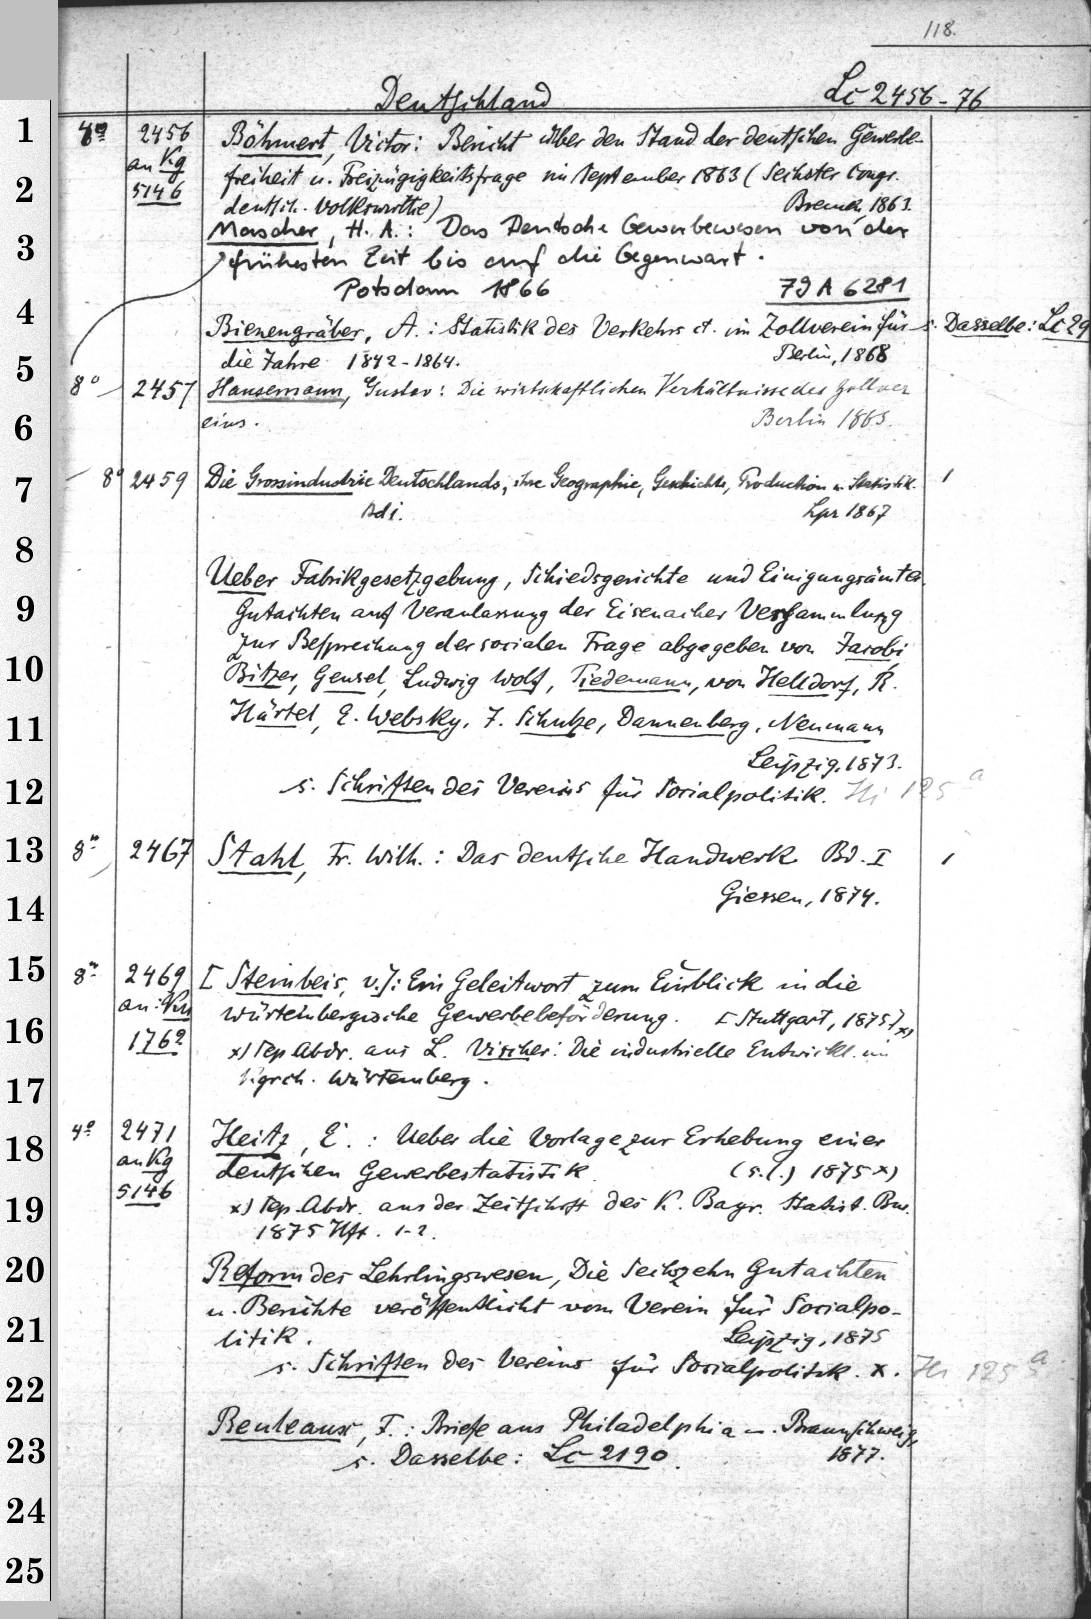 118.
Deutschland Lc 2456-76
1 4° 2456 Böhmert, Victor: Bericht über den Stand der deutschen Gewerbe-
an Kg
2 5146 freiheit u. Freizügigkeitsfrage im September 1863 (Sechster Congr.
deutsch. Volkswirthe) Bremen, 1863.
3 Mascher, H. A.: Das Deutsche Gewerbewesen von der
frühesten Zeit bis auf die Gegenwart.
Potsdam 1866 79 A 6281
4 Bienengräber, A.: Statistik des Verkehrs et. im Zollverein für s. Dasselbe: Lc 29
5 die Jahre 1842-1864. Berlin, 1868
8° 2457 Hansemann, Gustav: Die wirtschaftlichen Verhältnisse des Zollver
6 eins. Berlin 1863.
7 8° 2459 Die Grossindustrie Deutschlands, ihre Geographie, Geschichte, Production u. Statistik.
Bd i. Lpz 1867
8 Ueber Fabrikgesetzgebung, Schiedsgerichte und Einigungsämter.
9 Gutachten auf Veranlassung der Eisenacher Versammlung
10 zur Besprechung der socialen Frage abgegeben von Jacobi
Bitzer, Gensel, Ludwig Wolf, Tiedemann, von Helldorf, R.
11 Härtel, E. Websky, F. Schulze, Dannenberg, Neumann
Leipzig, 1873.
12 s. Schriften des Vereins für Socialpolitik. Hi 125 a
13 8° 2467 Stahl, Fr. Wilh.: Das deutsche Handwerk Bd. I
14 Giessen, 1874.
15 8° 2469 [Steinbeis, v.]: Ein Geleitwort zum Einblick in die
an: Ku
16 1762 würtembergische Gewerbebeförderung. [Stuttgart, 1875] x)
x) Sep. Abdr. aus L. Vischer: Die industrielle Entwickl. im
17 Kgrch. Würtemberg.
18 4° 2471 Heitz, E.: Ueber die Vorlage zur Erhebung einer
an Kg deutschen Gewerbestatistik (s.l.) 1875 x)
19 5146 x) Sep. Abdr. aus der Zeitschrift des K. Bayr. Statist. Bur.
1875 Hft. 1-2.
20 Reform des Lehrlingswesen, Die Sechszehn Gutachten
21 u. Berichte veröffentlicht vom Verein für Socialpo-
litik. Leipzig, 1875
22 s. Schriften des Vereins für Socialpolitik. x. Hi 125 a
23 Reuleaux, F.: Briefe aus Philadelphia -. Braunschweig,
s. Dasselbe: Lc 2190. 1877.
24
25